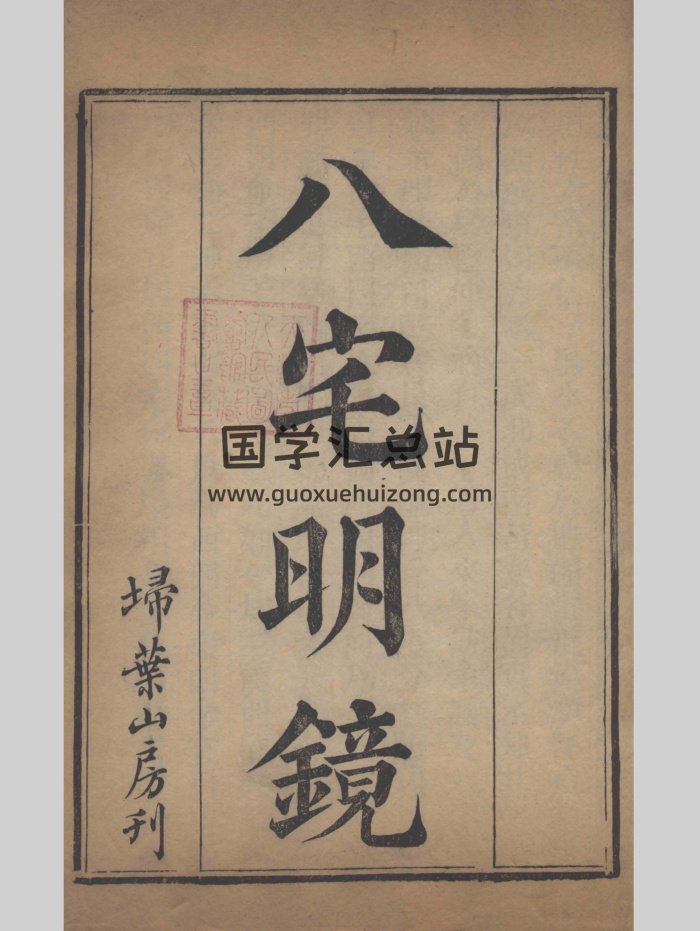 八宅明鏡
埽葉山房刊
国学汇总站
www.guoxuehuizong.com